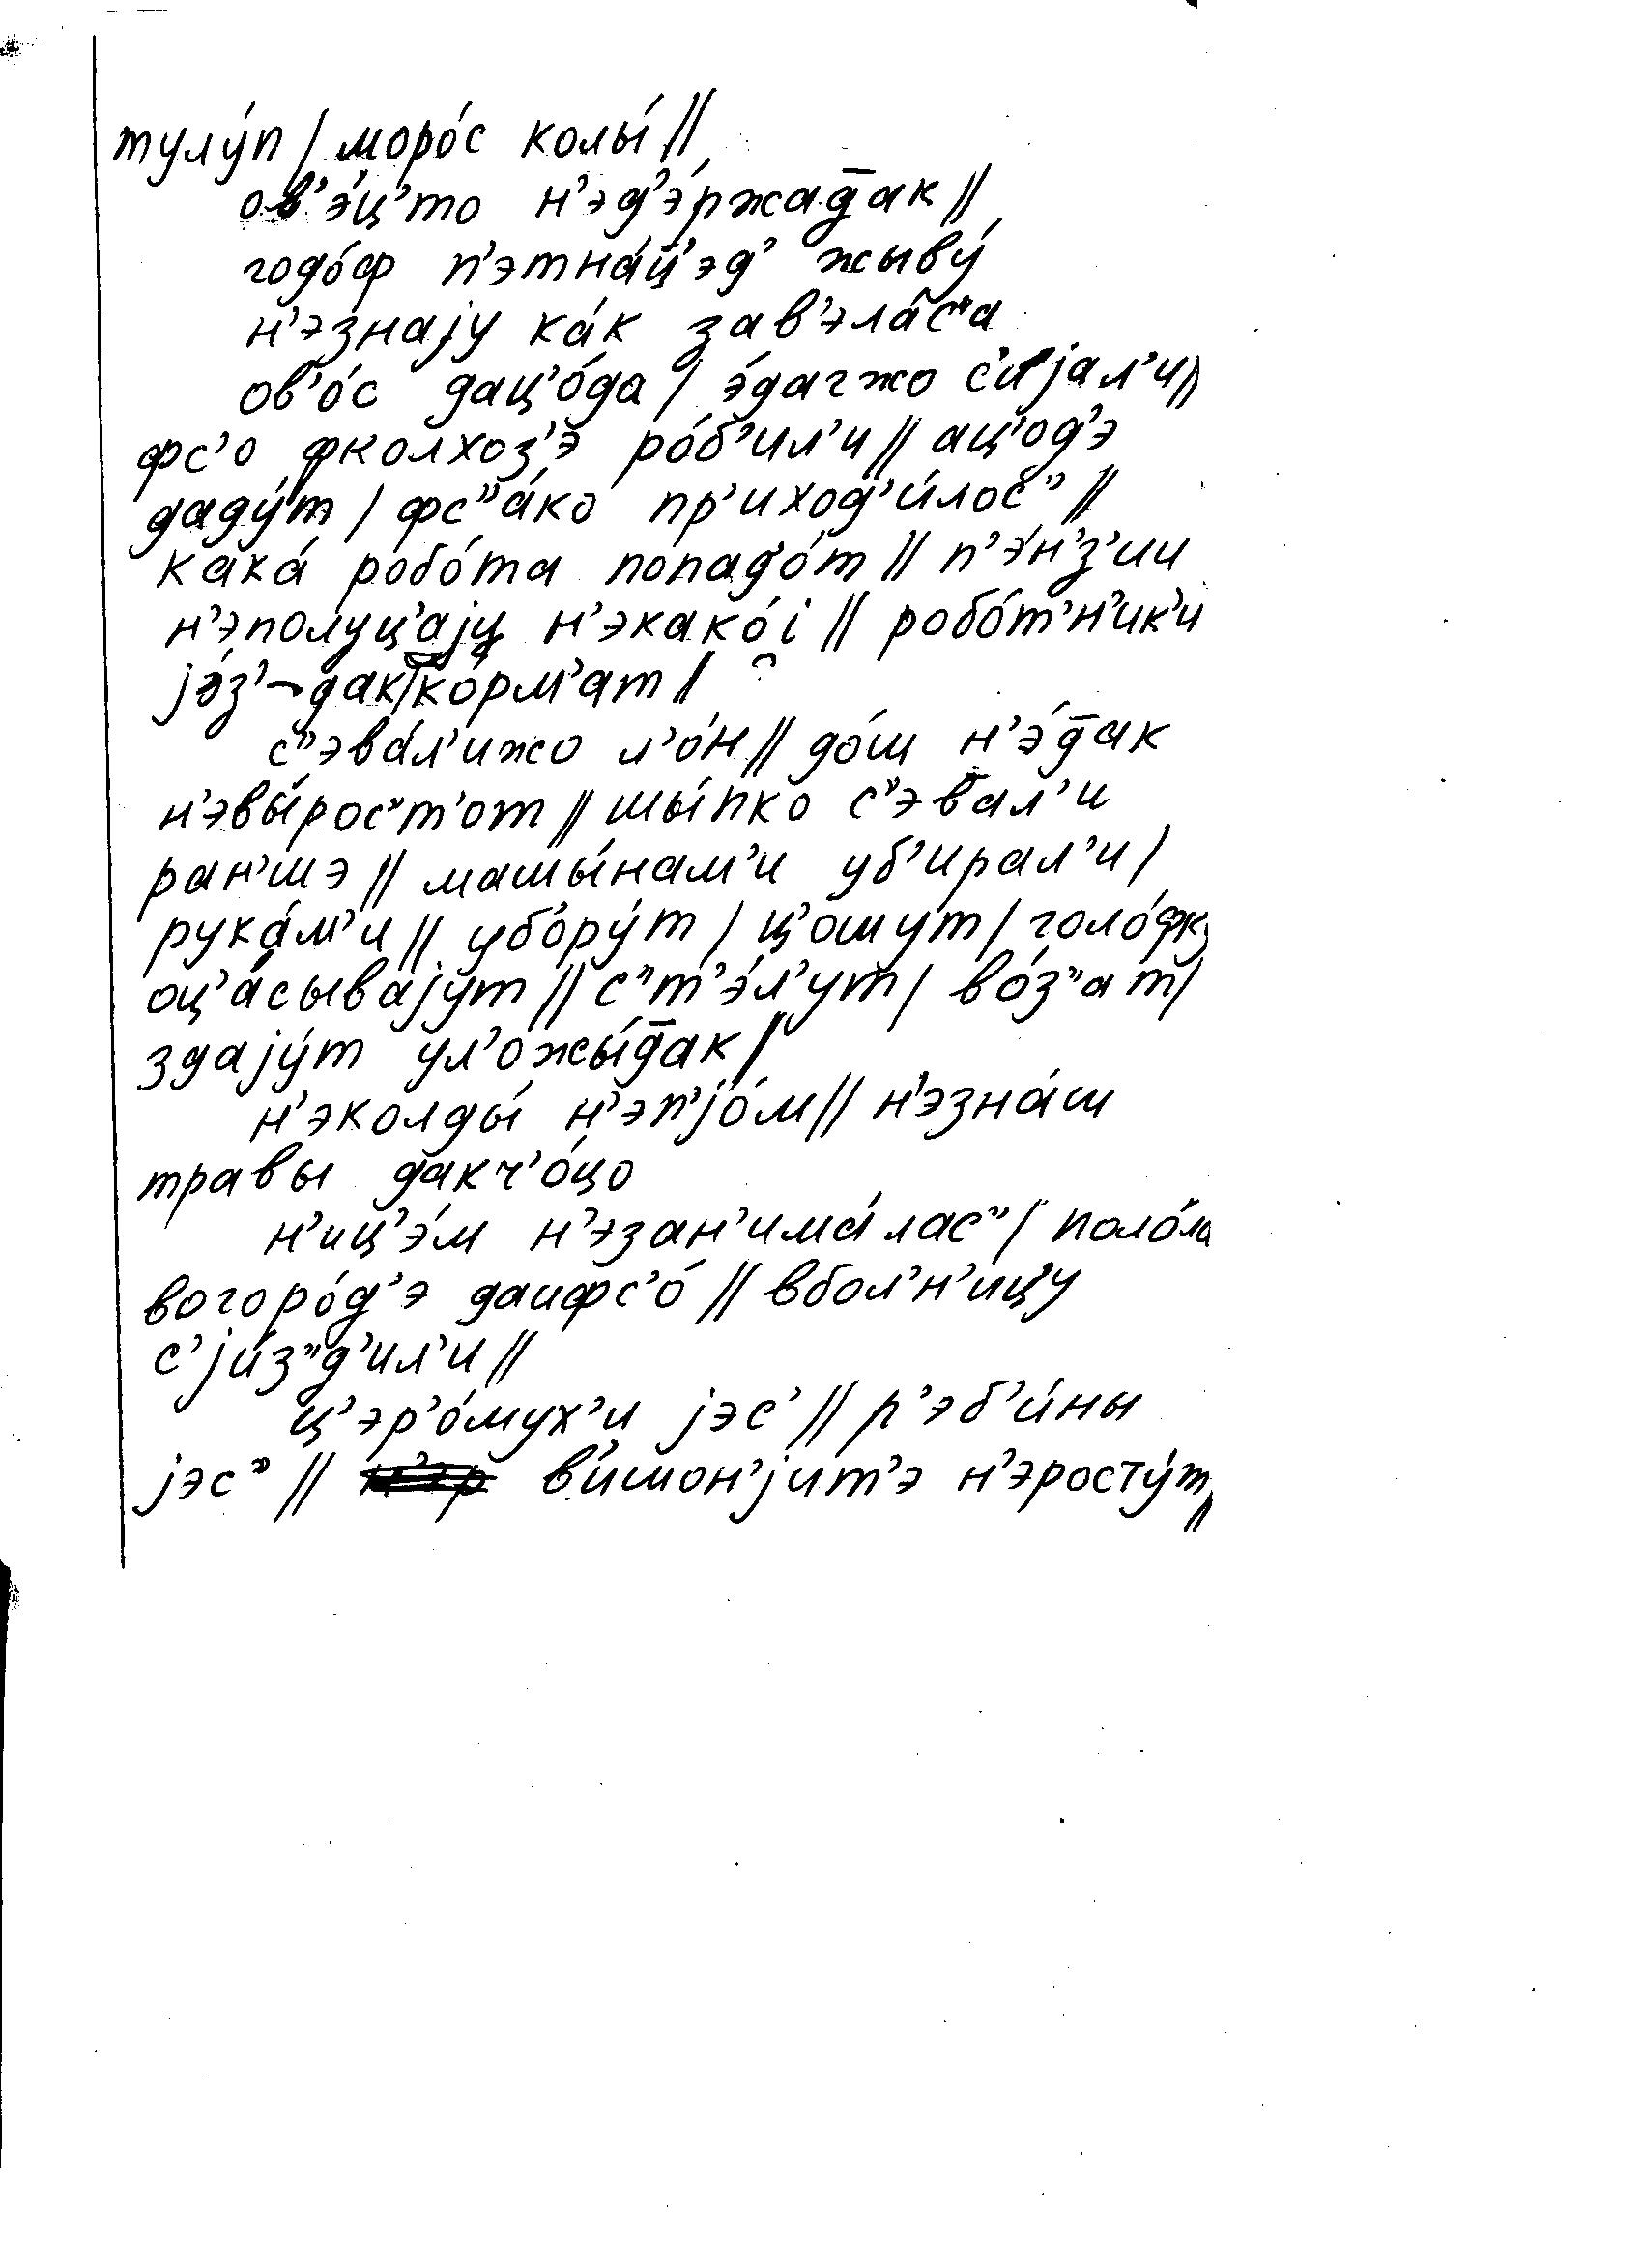 тулу́п / моро́с колы́ //
ов’э́ц’то н’эд’э́ржад̄ак //
годо́ф п’этна́ц̄’эд’ жыву́
н’э́знаjу ка́к зав’эла́с”а
ов’о́с дац’о́да / э́дагжо с’и́jал’и //
фс’о фколхоз’э ро́б’ил’и // ац’од’э
даду́т / фс”а́ко пр’иход’и́лос” //
кака́ робо́та попадо́т // п’э́н’з’ии
н’эполуц’аjу н’экако́i // робо́т’н’ик’и
jэ́з’¬дак/ко́рм’ат //
с”эва́л’ижо л’о́н // до́ш н’э́д̄ак
н’эвы́рос”т’от // шы́пко с”эвал’и
ран’шэ // машы́нам’и уб’ирал’и /
рука́м’и // убору́т / ц’ошу́т / голо́фку
оц’а́сываjут // с”т’э́л’ут / во́з”ат /
здаjу́т ул’ожы́д̄ак /
н’эколды́ н’эп’jо́м // н’эзна́ш
травы дакч’о́цо
н’иц’э́м н’эзан’има́лас” / поло́ла
вогоро́д’э даифс’о́ // вбол’н’ицу
с’jи́з”д’ил’и //
ц’эр’о́мух’и jэс’ // р’эб’и́ны
jэс” // ви́шон’jит’э н’эросту́т //